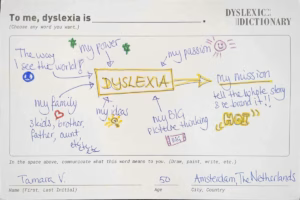 To me, dyslexia is
(Choose any word you want.)
DYSLEXIC
DICTIONARY
The way I
see the world!
my power
my passion
DYSLEXIA
my mission
tell the whole story
& re brand it!!
my family
3 kids, brother
father, aunt
etc etc etc
my ideas
my BIG
picture thinking
In the space above, communicate what this word means to you. (Draw, paint, write, etc.)
Tamara V.
50
Amsterdam, The Netherlands
Name (First, Last Initial)
Age
City, Country